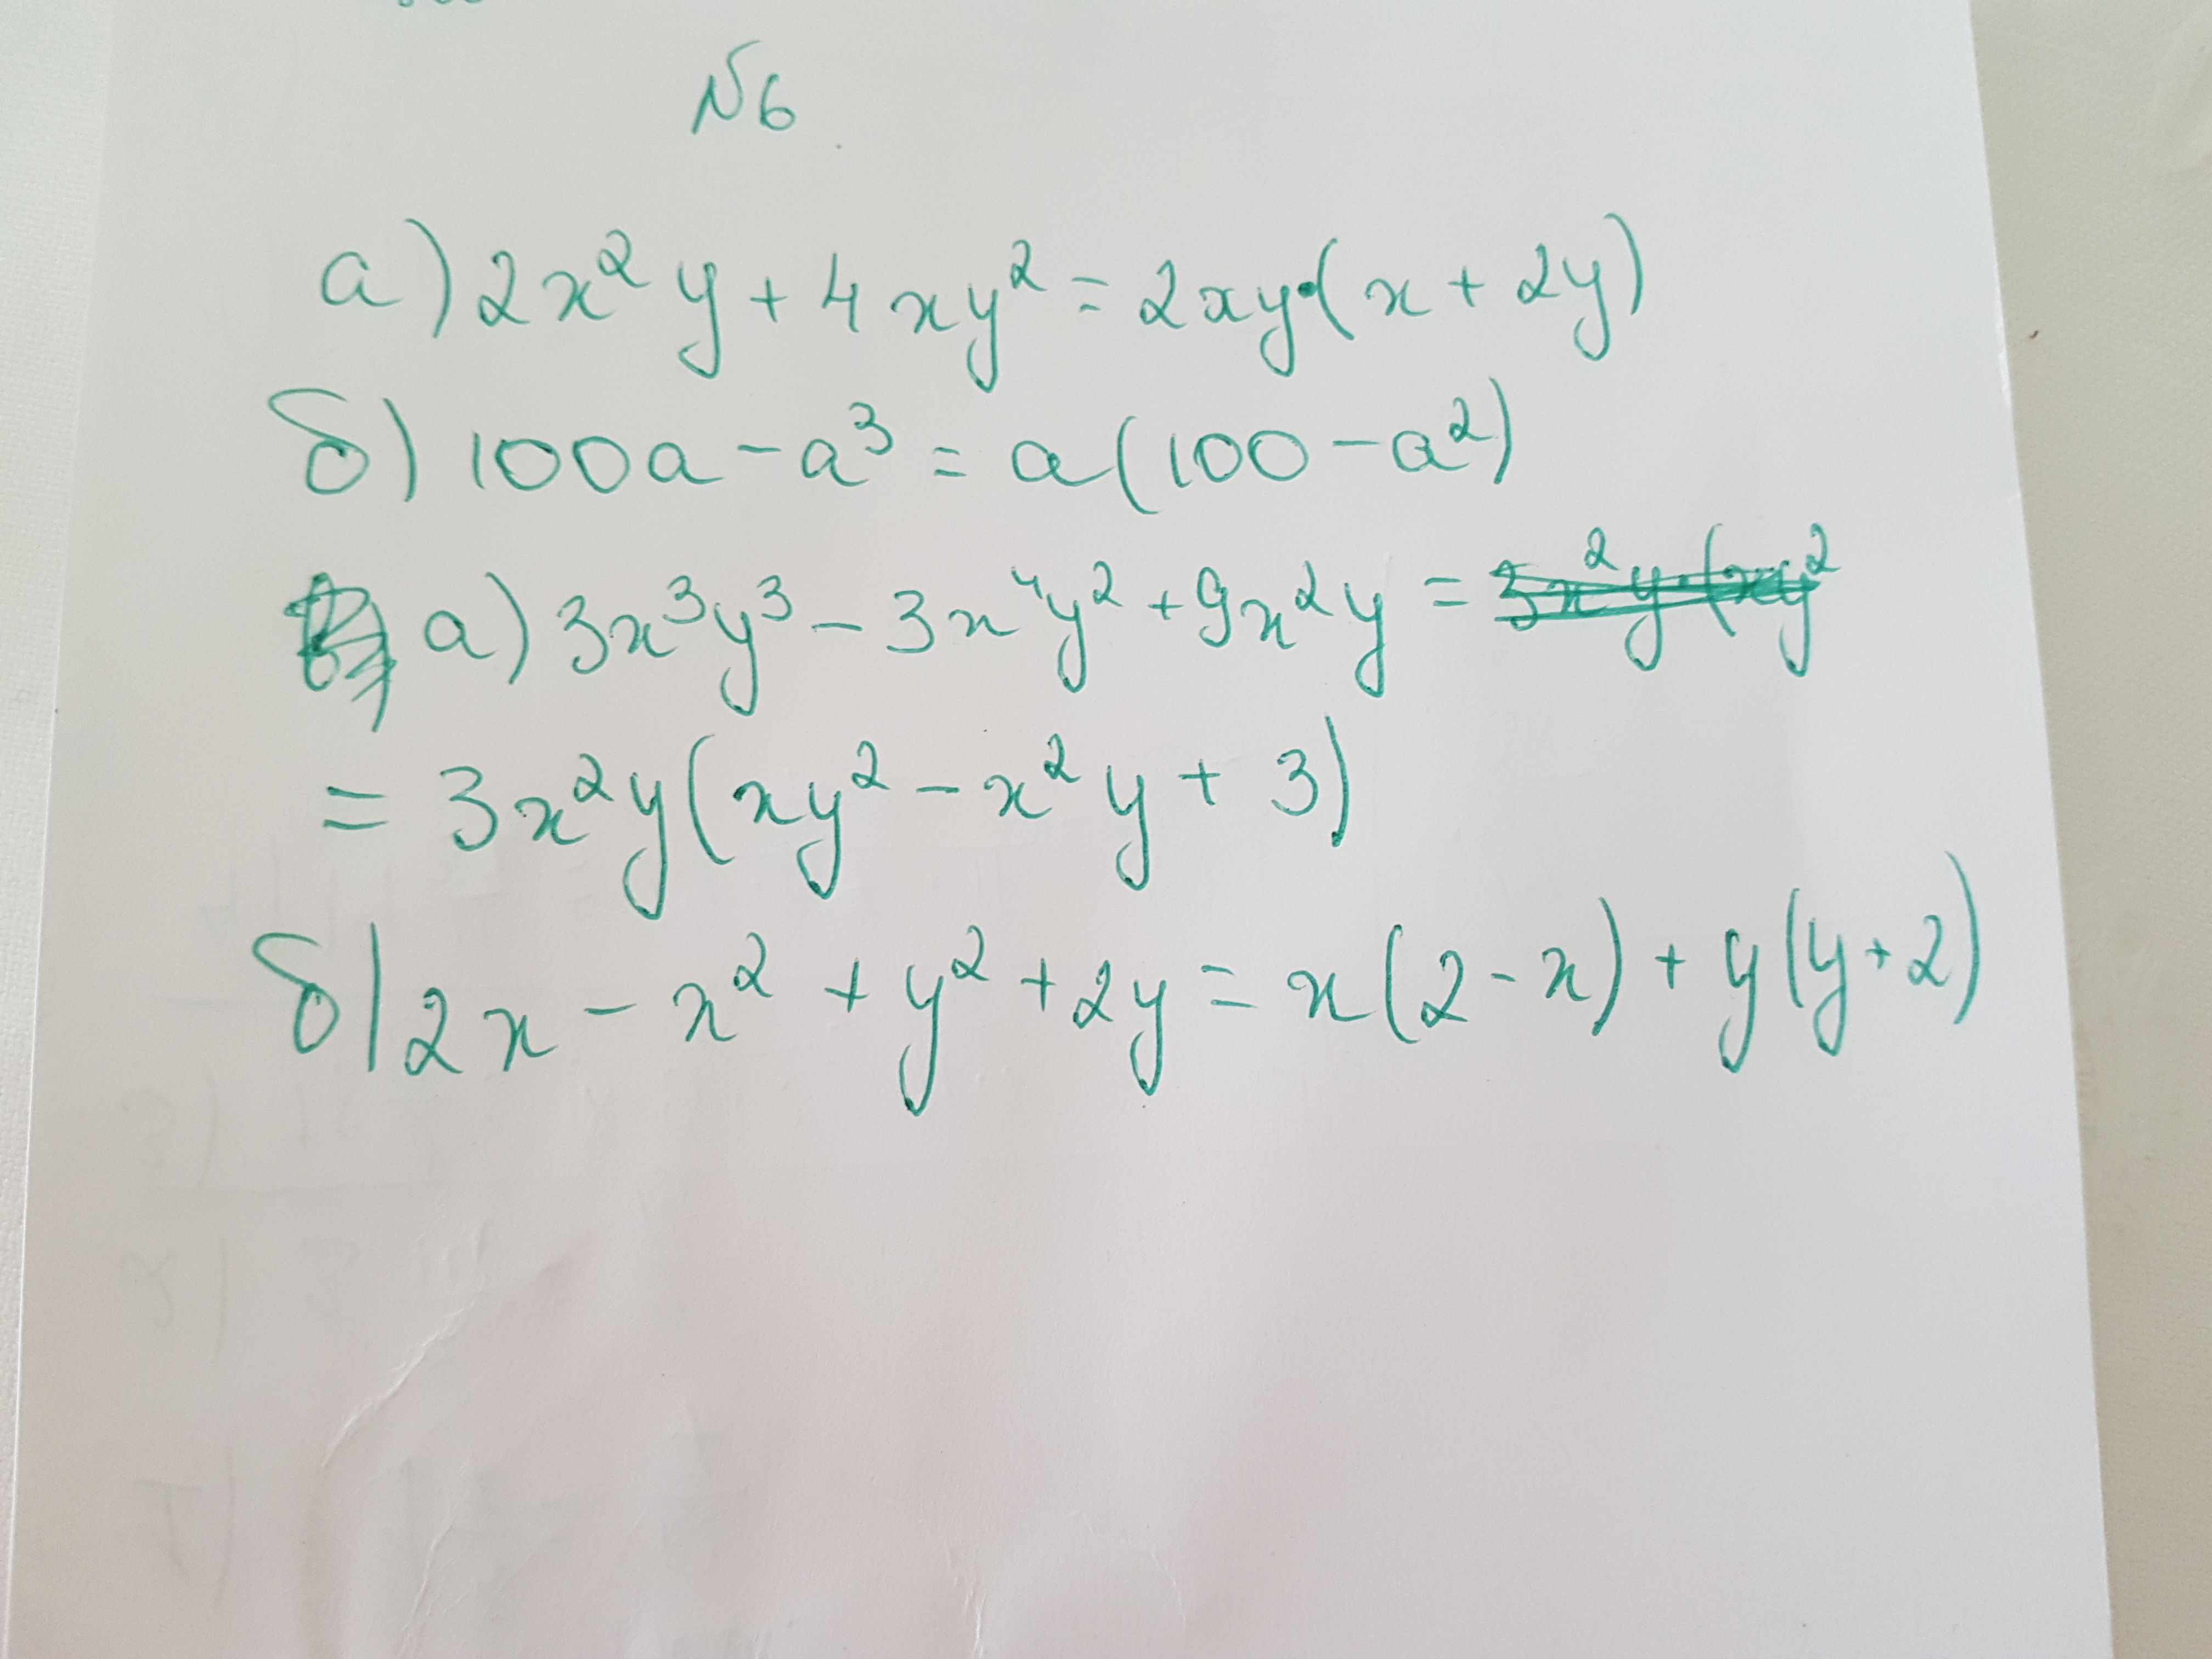 №6
а) 2x²y + 4xy² = 2xy·(x + 2y)
б) 100a - a³ = a(100 - a²)
а) 3x³y³ - 3x⁴y² + 9x²y = 3x²y·(xy²
= 3x²y(xy² - x²y + 3)
б) 2x - x² + y² + 2y = x(2 - x) + y(y + 2)